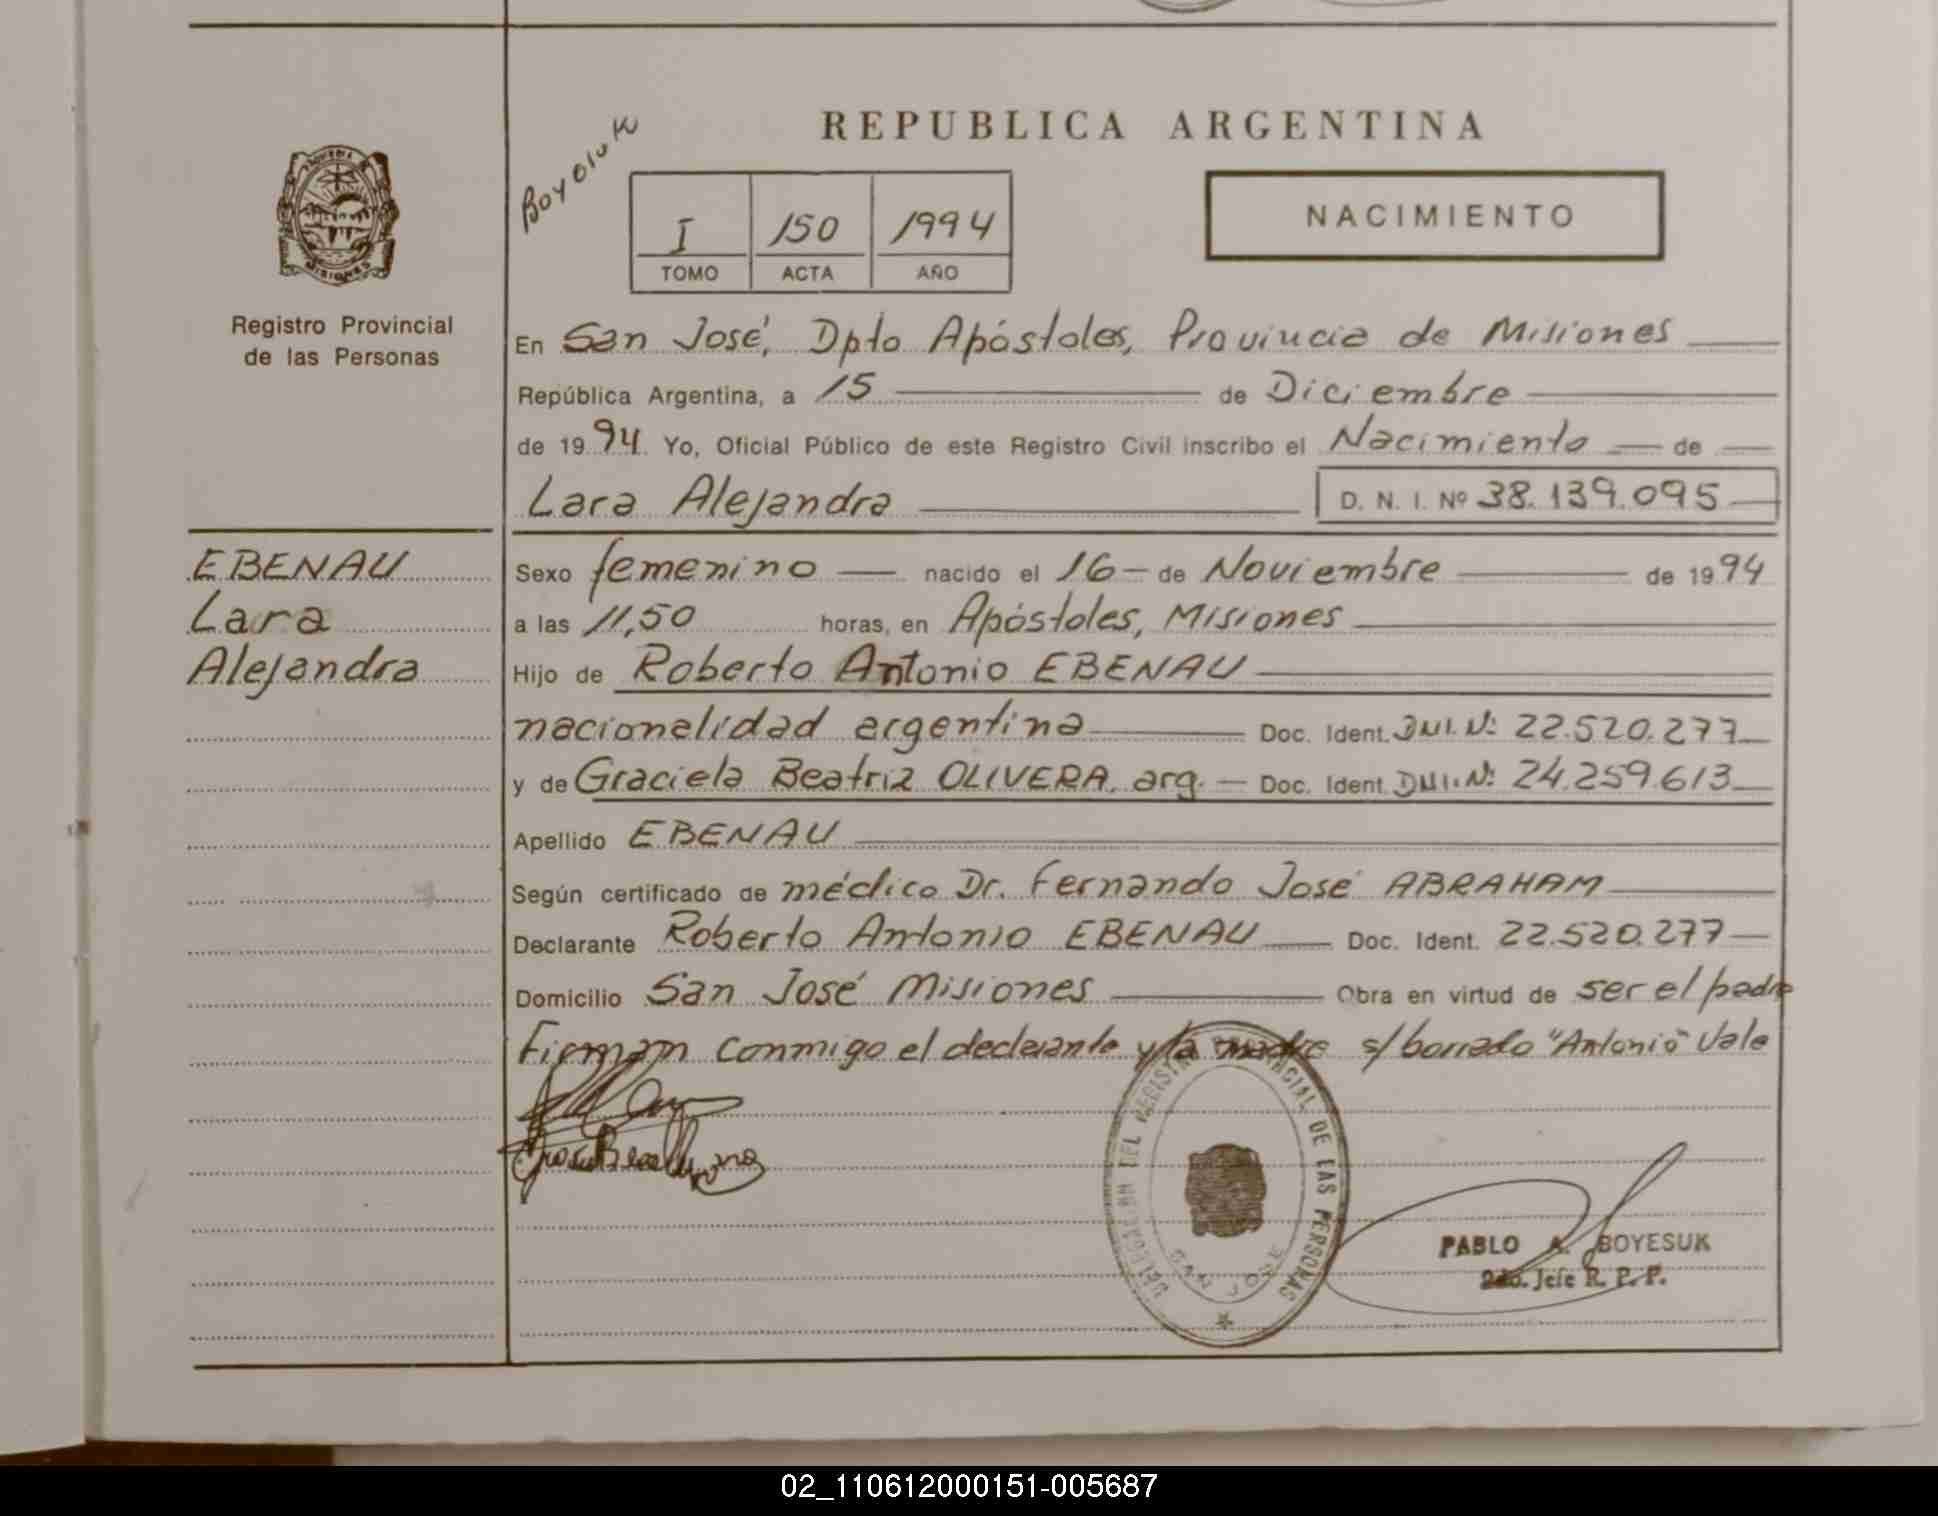 REPUBLICA ARGENTINA
I 150 1994
TOMO ACTA AÑO
NACIMIENTO
MISIONES
Registro Provincial
de las Personas
En San José, Dpto Apóstoles, Provincia de Misiones
República Argentina, a 15 de Diciembre
de 19 94. Yo, Oficial Público de este Registro Civil inscribo el Nacimiento de
Lara Alejandra D. N. I. Nº 38.139.095
EBENAU
Lara
Alejandra
Sexo femenino nacido el 16 de Noviembre de 19 94
a las 11,50 horas, en Apóstoles, Misiones
Hijo de Roberto Antonio EBENAU
nacionalidad argentina Doc. Ident. DNI. Nº 22.520.277
y de Graciela Beatriz OLIVERA, arg. Doc. Ident. DNI. Nº 24.259.613
Apellido EBENAU
Según certificado de médico Dr. Fernando José ABRAHAM
Declarante Roberto Antonio EBENAU Doc. Ident. 22.520.277
Domicilio San José Misiones Obra en virtud de ser el padre
Firman conmigo el declarante y la madre s/borrado "Antonio" Vale
DELEGACION DEL REGISTRO PROVINCIAL DE LAS PERSONAS
SAN JOSE
PABLO A. BOYESUK
2do. Jefe R. P. P.
02_110612000151-005687